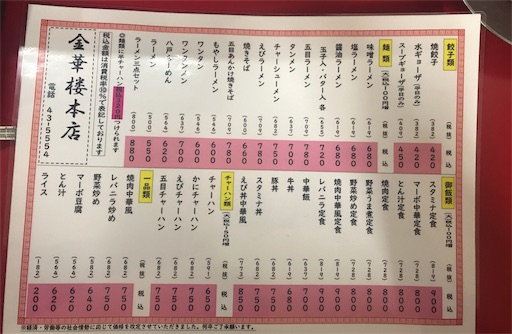 餃子類 (税抜) 税込
焼餃子 (382) 420
水ギョーザ(平日のみ) (382) 420
スープギョーザ(平日のみ) (409) 450
麺類 (大(税込)100円増) (税抜) 税込
味噌ラーメン (619) 680
塩ラーメン (619) 680
醤油ラーメン (619) 680
玉子入・バター入 各 720
五目ラーメン (709) 780
タンメン
チャーシューメン
えびラーメン
焼きそば
五目あんかけ焼きそば (709) 780
もやしラーメン
ワンタン (546) 600
ワンタンメン 700
八戸らーめん (564) 620
ラーメン (500) 550
ラーメン三点セット (800) 880
◎麺類に半チャーハン つけられます
税込金額は消費税率10%で表記しております
金華楼本店
電話 43-5554
御飯類 (大(税込)100円増) (税抜) 税込
スタミナ定食 900
焼肉定食 (728) 800
マーボ中華定食 (728) 800
とん汁定食 (728) 800
野菜うま煮定食 (728) 800
野菜炒め定食 (728) 800
焼肉中華風定食
レバニラ定食
中華飯
牛丼
豚丼 (682) 750
スタミナ丼 (682) 750
えび丼中華風 (773) 850
チャーハン類 (大(税込)100円増) (税抜) 税込
チャーハン (591) 650
かにチャーハン (682) 750
えびチャーハン (682) 750
五目チャーハン (682) 750
一品類 (税抜) 税込
焼肉中華風 (682) 750
レバニラ炒め
野菜炒め (582) 640
マーボ豆腐 (564) 620
とん汁 (564) 620
ライス (182) 200
※経済・労働等の社会情勢に応じて価格を改定させていただきました。何卒ご了承願います。